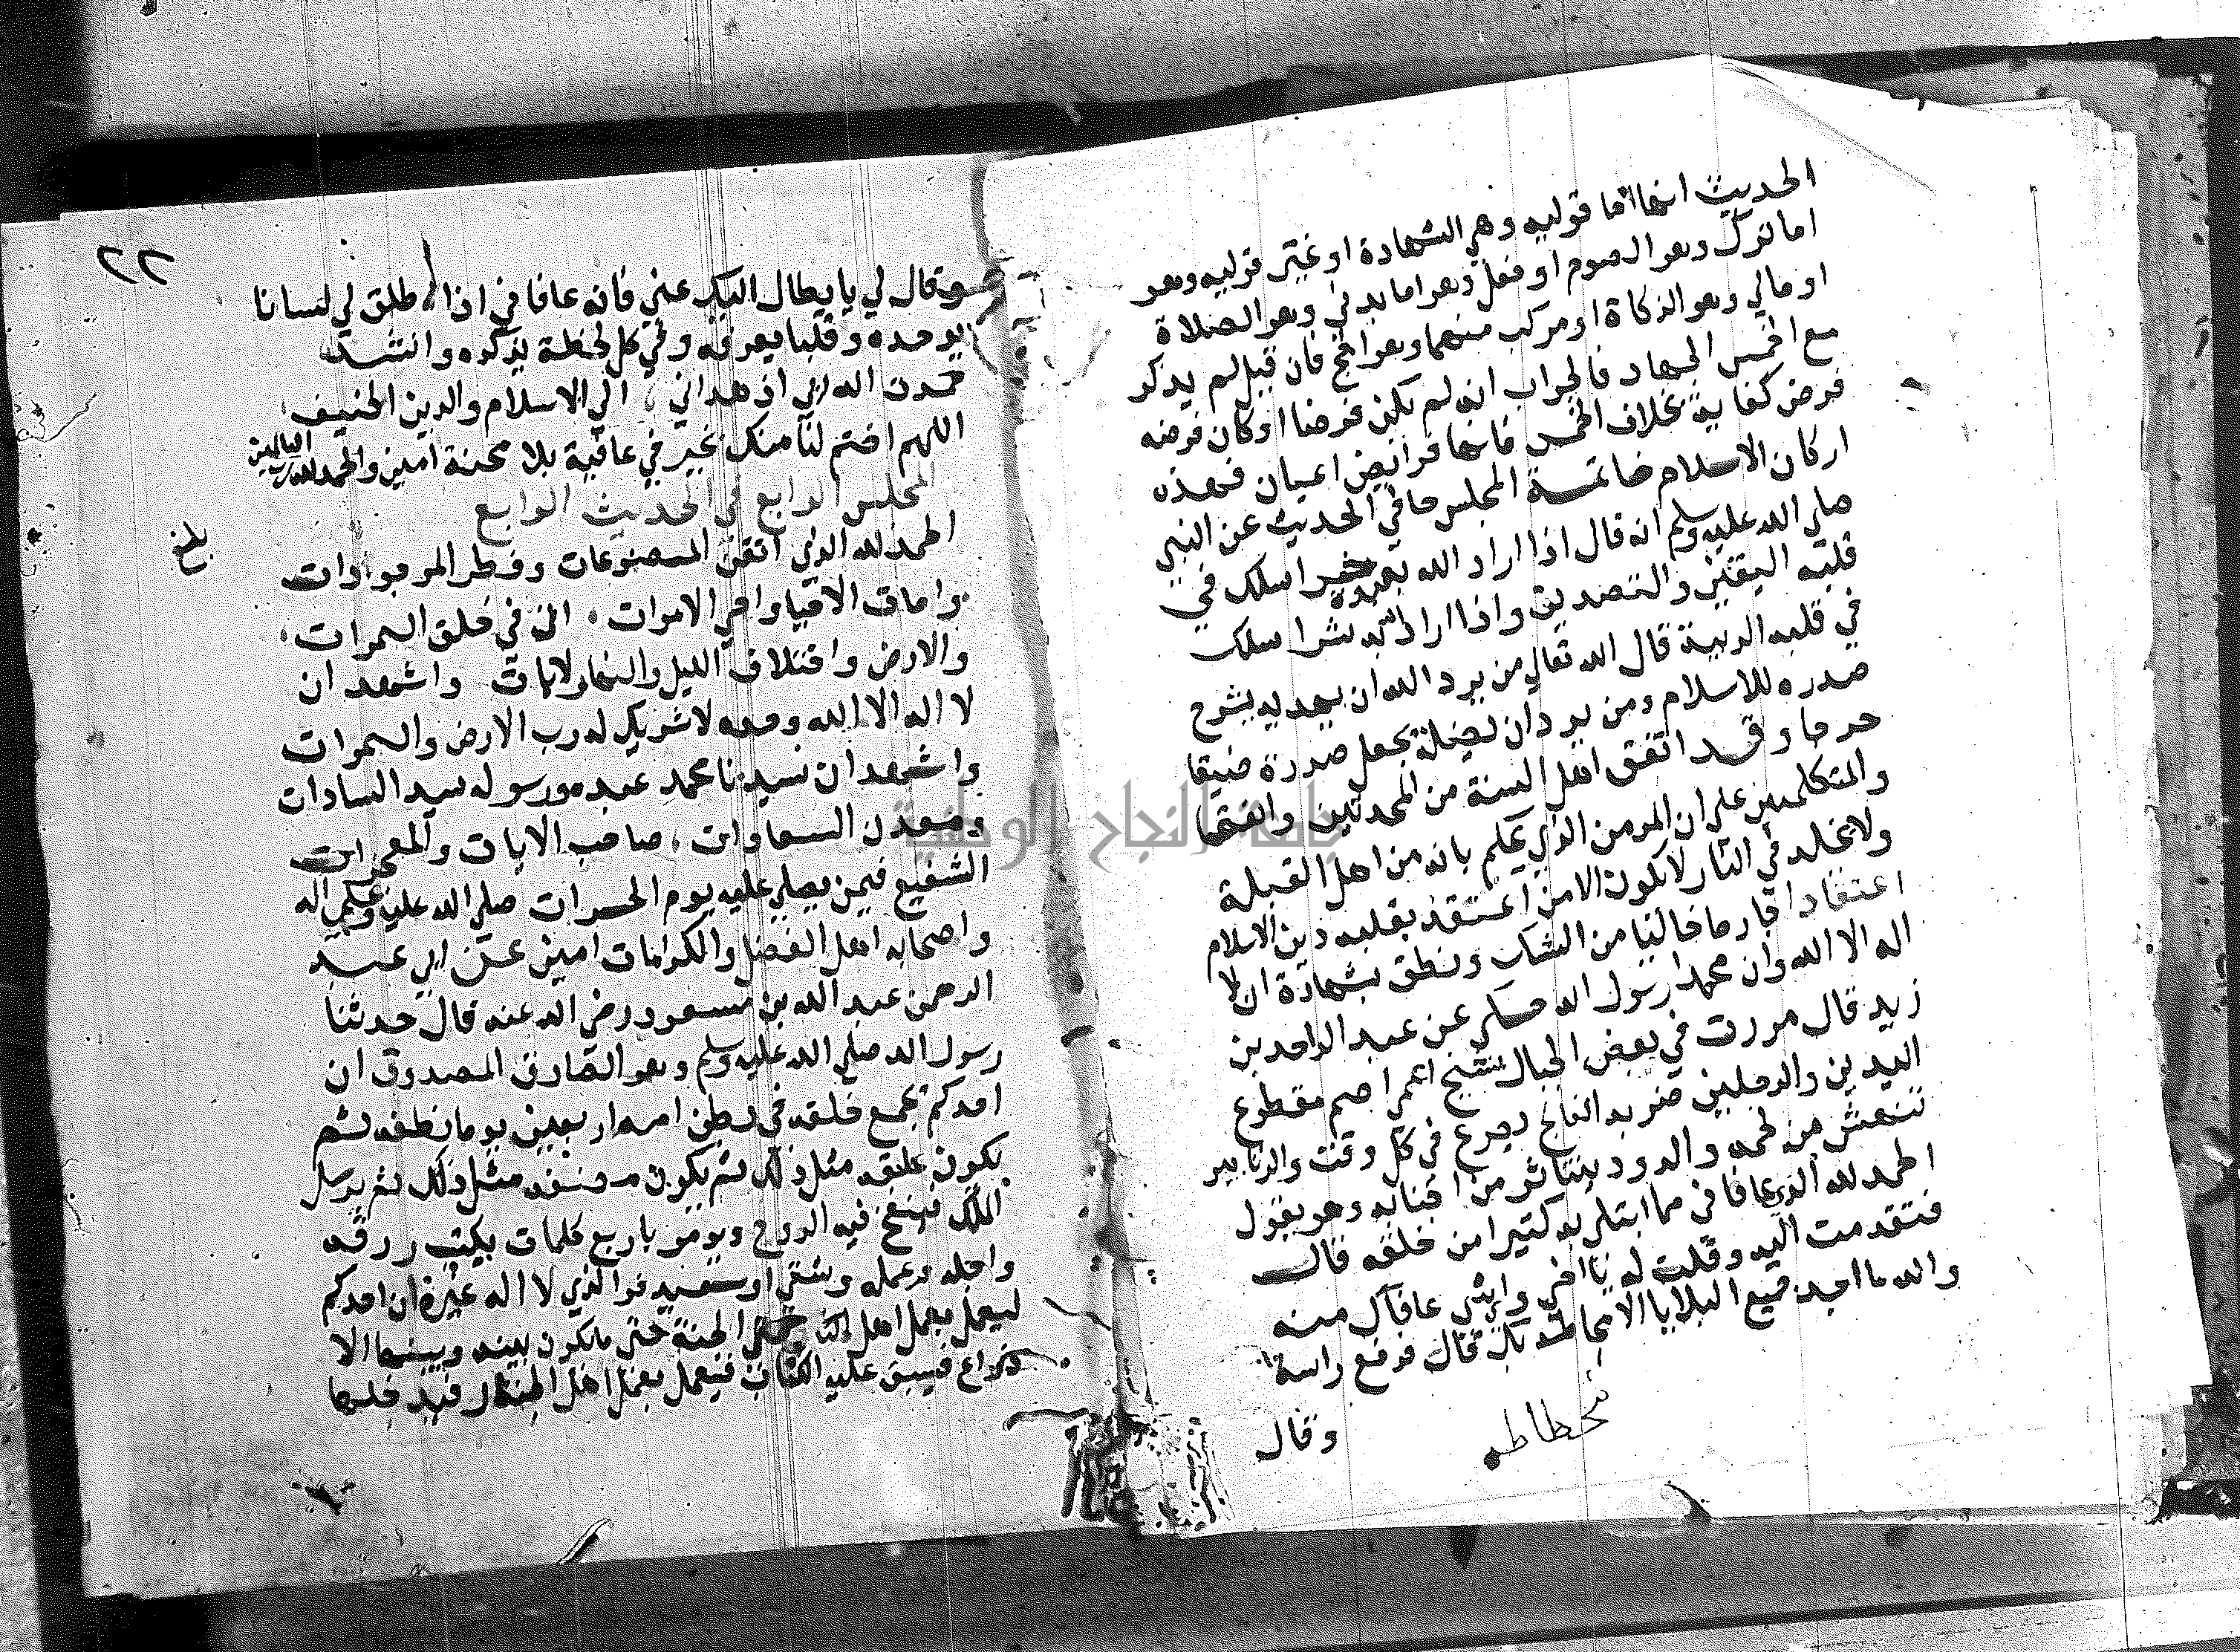 الحديث انها اما قوليه وهي الشهادة او غير قوليه وهو
اما ترك وهو الصوم او فعل وهو اما بدني وهو الصلاة
او مالي وهو الزكاة او مركب منهما وهو الحج فان قيل لم يذكر
مع الخمس الجهاد فالجواب انه لم يكن فرضا او كان فرضه
فرض كفاية بخلاف الخمس فانها فرائض اعيان فهذه
اركان الاسلام خاتمة المجلس ما في الحديث عن النبي
صلى الله عليه وسلم انه قال اذا اراد الله بعبده خيرا سلك في
قلبه اليقين والتصديق واذا اراد الله به شرا سلك
في قلبه الريبة قال الله تعالى من يرد الله ان يهديه يشرح
صدره للاسلام ومن يرد ان يضله يجعل صدره ضيقا
حرجا وقد اتفق اهل السنة من المحدثين والفقها
والمتكلمين على ان المومن الذي يحكم بانه من اهل القبلة
ولا يخلد في النار لا يكون الا من اعتقد بقلبه دين الاسلام
اعتقادا جازما خاليا من الشك ونطق بشهادة ان لا
اله الا الله وان محمدا رسول الله حكي عن عبد الواحد بن
زيد قال مررت في بعض الجبال بشيخ اعمى اصم مقطوع
اليدين والرجلين ضربه الفالج يصرع في كل وقت والزنابير
تنهش من لحمه والدود يتناثر من اجنابه وهو يقول
الحمد لله الذي عافاني مما ابتلى به كثيرا من خلقه قال
فتقدمت اليه وقلت له يا اخي واي شي عافاك منه
والله ما اجد جميع البلايا الا محاطة بك قال فرفع راسه
محاطة
وقال
٢٢
وقال لي يا بطال اليك عني فانه عافاني اذا اطلق لي لسانا
يوحده وقلبا يعرفه وفي كل لحظة يذكره وانشد
حمدت الله ربي اذ هداني الى الاسلام والدين الحنيف
اللهم اختم لنا منك بخير في عافية بلا محنة امين والحمد لله رب العالمين
المجلس الرابع في الحديث الرابع
الحمد لله الذي اتقن المصنوعات وفطر الموجودات
بلغ
وامات الاحيا واحي الاموات ان في خلق السموات
والارض واختلاف الليل والنهار لايات واشهد ان
لا اله الا الله وحده لا شريك له رب الارض والسموات
واشهد ان سيدنا محمد عبده ورسوله سيد السادات
ومعدن السعاوات صاحب الايات والمعجزات
الشفيع فيمن يصلي عليه يوم الحسرات صلى الله عليه وعلى اله
واصحابه اهل الفضل والكرامات امين عن ابي عبد
الرحمن عبد الله بن مسعود رضي الله عنه قال حدثنا
رسول الله صلى الله عليه وسلم وهو الصادق المصدوق ان
احدكم يجمع خلقه في بطن امه اربعين يوما نطفه ثم
يكون علقه مثل ذلك ثم يكون مضغه مثل ذلك ثم يرسل
الملك فينفخ فيه الروح ويومر باربع كلمات بكتب رزقه
واجله وعمله وشقي او سعيد فوالذي لا اله غيره ان احدكم
ليعمل بعمل اهل الجنة حتى ما يكون بينه وبينها الا
ذراع فيسبق عليه الكتاب فيعمل بعمل اهل النار فيدخلها
جامعة النجاح الوطنية